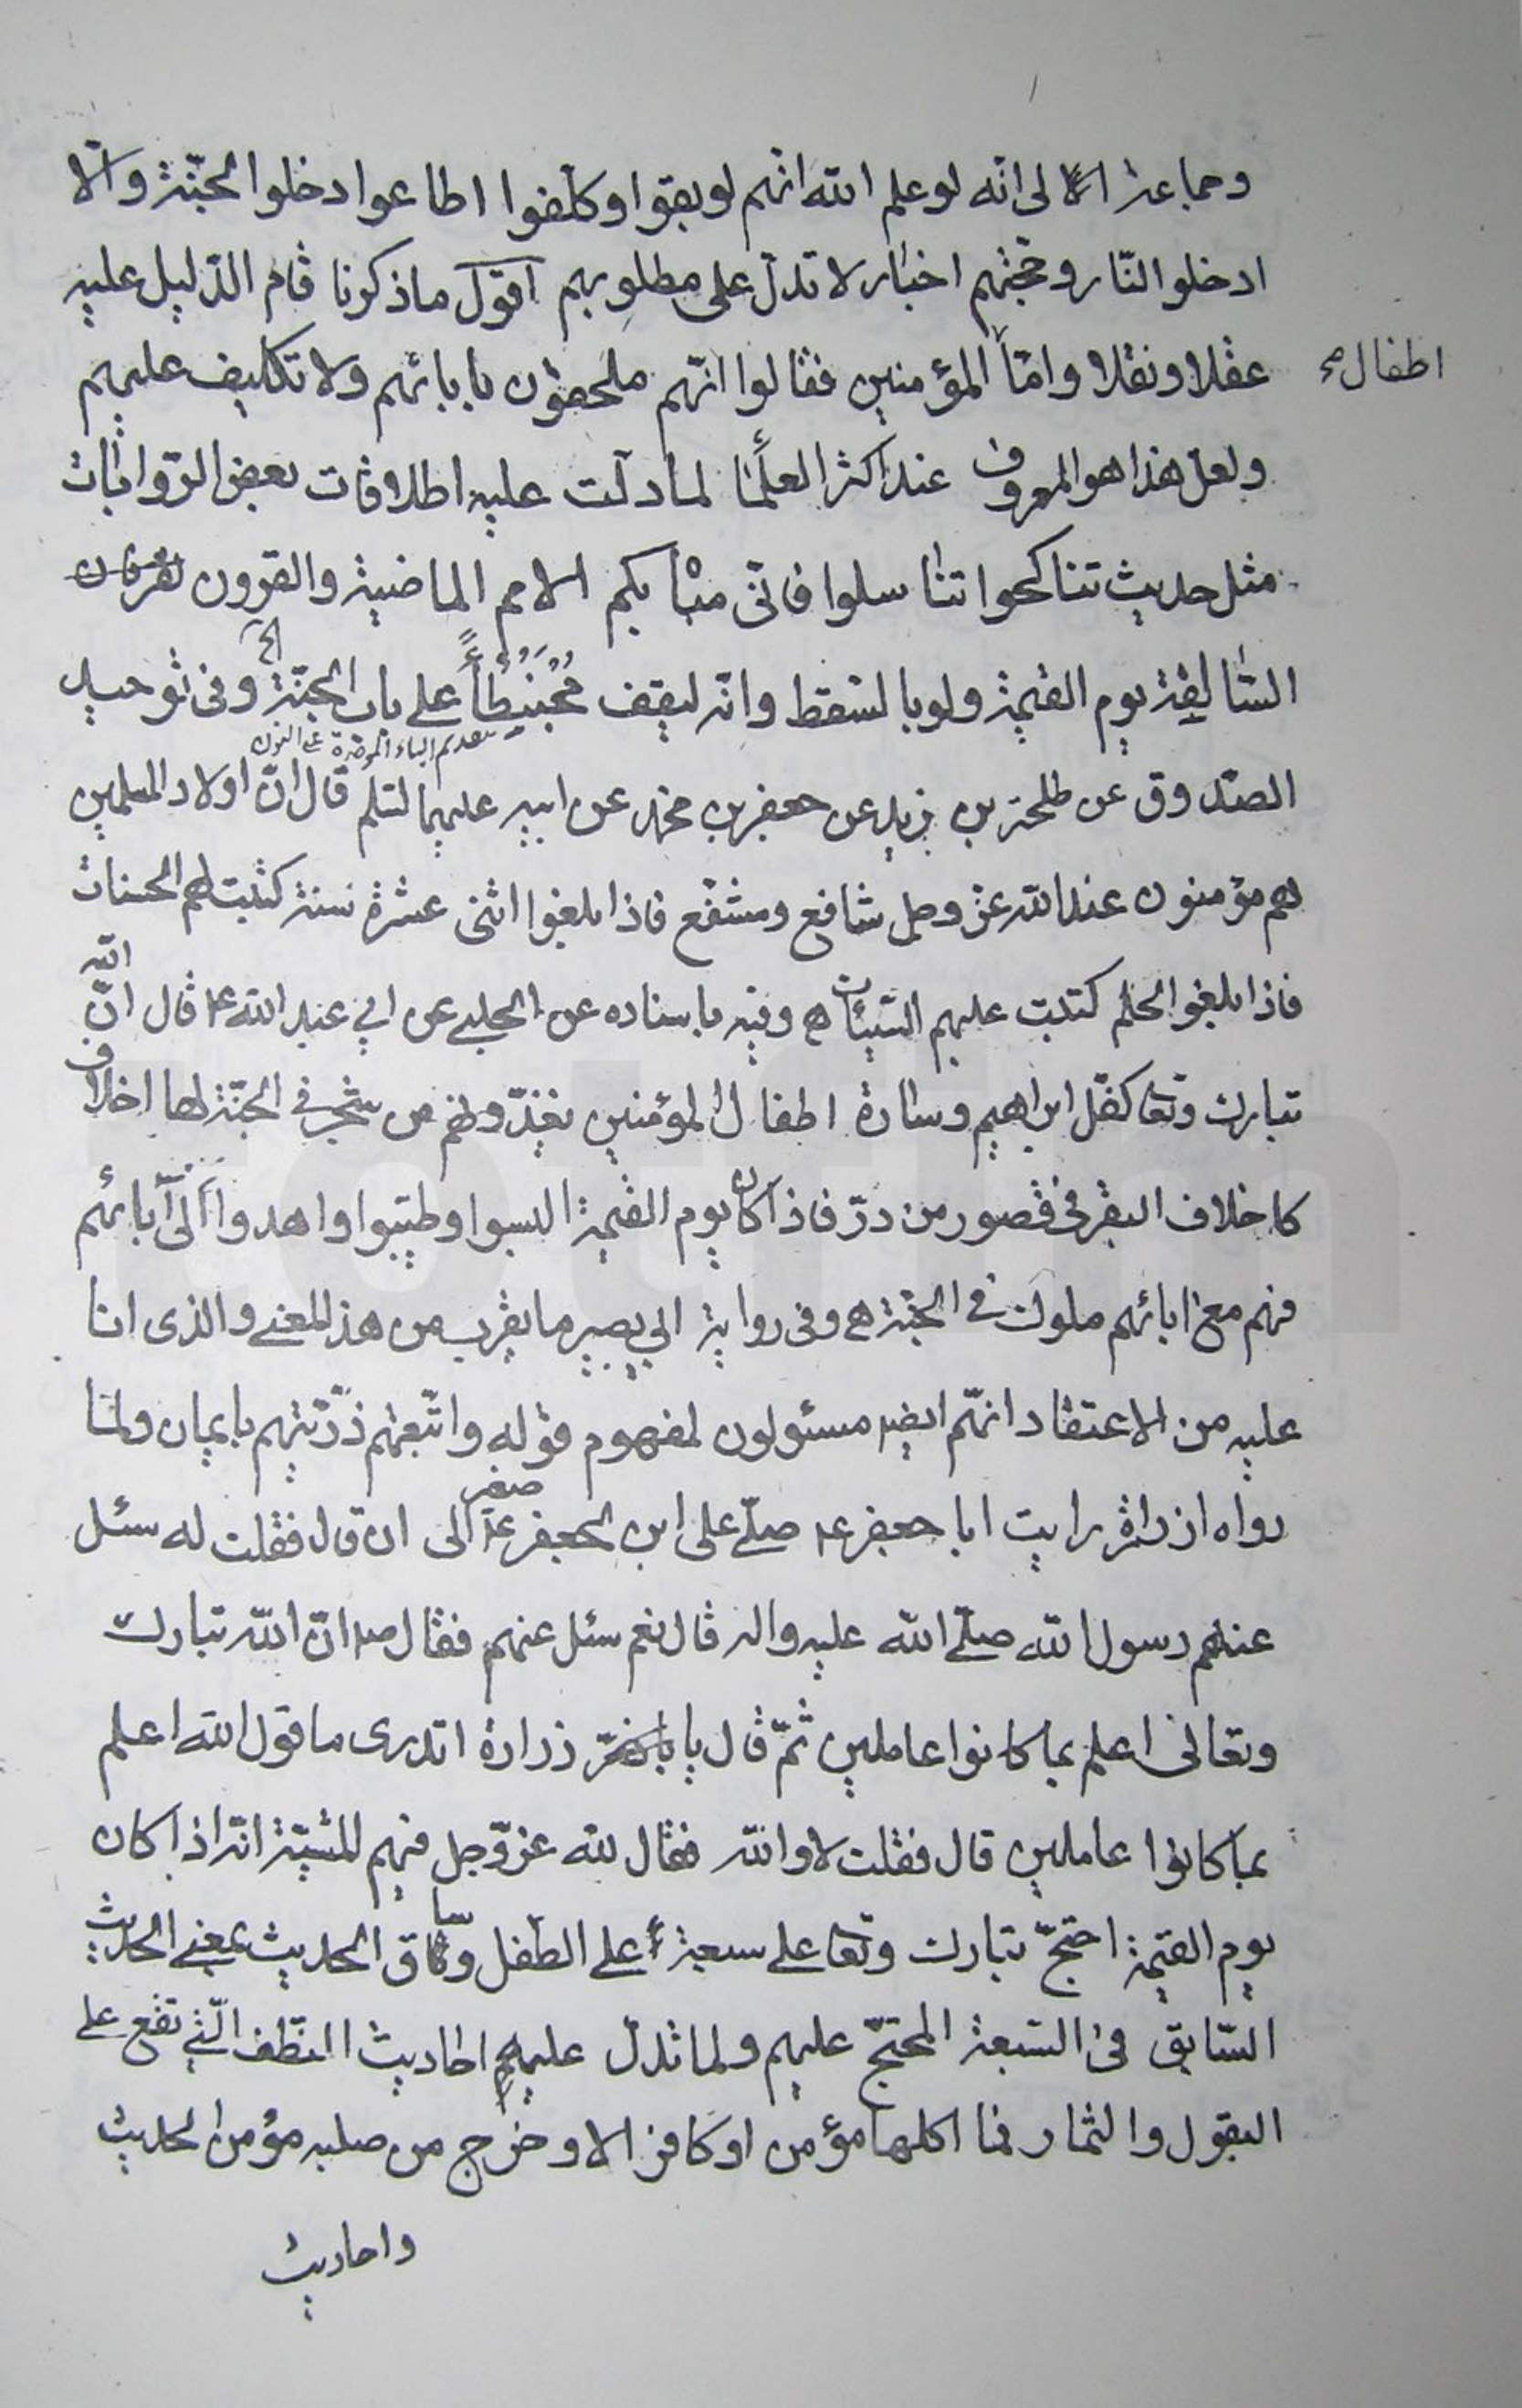 وجماعة الى انه لو علم الله انهم لو بقوا وكلفوا اطاعوا ادخلوا الجنّة والّا
ادخلوا النّار وحجتهم اخبار لا تدلّ على مطلوبهم اقول ما ذكرنا قام الدّليل عليه
عقلا ونقلا وامّا المؤمنين فقالوا انّهم ملحقون بابائهم ولا تكليف عليهم
اطفال صح
ولعل هذا هو المعروف عند اكثر العلمآء لما دلّت عليه اطلاقات بعض الرّوايات
مثل حديث تناكحوا تناسلوا فانّى مباه بكم الامم الماضية والقرون
السّالفة يوم القيمة ولو بالسّقط وانّه ليقف مُحْبَنْطِأً على باب الجنّة الخ وفى توحيد
بتقديم الباء الموحّدة على النون
الصّدوق عن طلحة بن زيد عن جعفر بن محمّد عن ابيه عليهما السّلم قال انّ اولاد المسلمين
هم مؤمنون عند الله عزّ وجل شافع ومشفّع فاذا بلغوا اثنى عشرة سنة كتبت لهم الحسنات
فاذا بلغوا الحلم كتبت عليهم السّيّئات ه وفيه باسناده عن الحلبى عن ابي عبد الله ع قال انّ الله
تبارك وتعا كفّل ابراهيم وسارة اطفال المؤمنين يغذّونهم من شجر فى الجنّة لها اخلاف
كاخلاف البقر فى قصور من درّ فاذا كان يوم القيمة البسوا وطيّبوا واهدوا الى آبائهم
فهم مع ابائهم ملوك فى الجنّة ه وفى رواية ابي بصير ما يقرب من هذا المعنى والذى انا
عليه من الاعتقاد انهّم ايضا مسئولون لمفهوم قوله واتّبعتهم ذرّيّتهم بايمان ولما
رواه زرارة رايت ابا جعفر ع صلّى على ابن لجعفر ع صغير الى ان قال فقلت له سئل
عنهم رسول الله صلّى الله عليه واله قال نعم سئل عنهم فقال ص انّ الله تبارك
وتعالى اعلم بما كانوا عاملين ثمّ قال يا زرارة اتدرى ما قول الله اعلم
بما كانوا عاملين قال فقلت لا والله فقال لله عزّ وجل فيهم المشيّة انّه اذا كان
يوم القيمة احتجّ تبارك وتعا على سبعة على الطّفل وساق الحديث بمعنى الحديث
السّابق فى السّبعة المحتجّ عليهم ولما تدلّ عليهم احاديث النّطف الّتى تقع على
البقول والثمار فما اكلها مؤمن او كافر الا وخرج من صلبه مؤمن الحديث
واحاديث